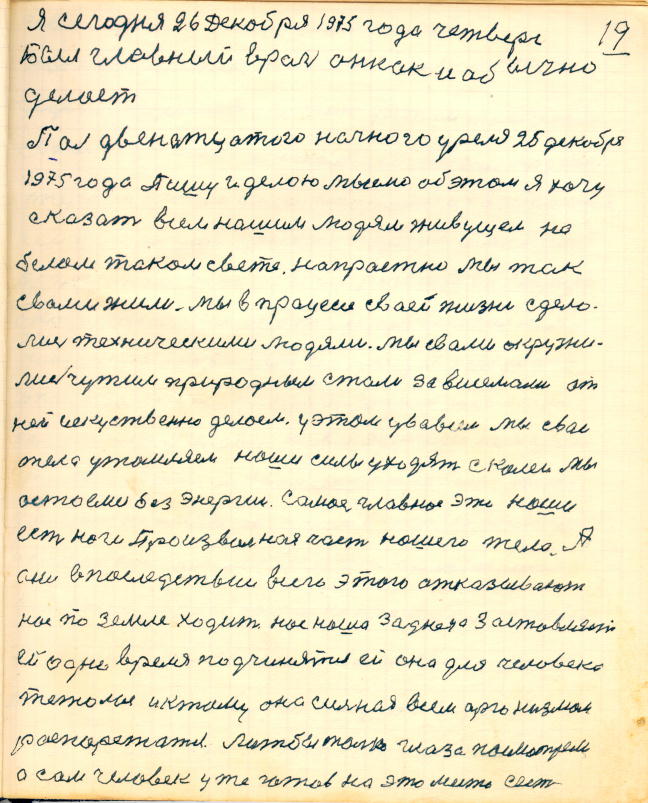 19
Я сегодня 26 Декобря 1975 года четверг
Был главный врач он как и обычно
делоет
Пол двенатцатого начного уреля 25 декобря
1975 года Пишу и делою мысмо об этом Я хочу
сказат всем нашим людям живущем на
белом таком свете. напрастно мы так
с вами жили. мы в процессе сваей жизни сдело-
лис техническими людями. мы с вами окружи-
лис чужим природным стали зависемами от
ней искуственно делоем. у этом увавсем мы сваи
тела утомляем наши силы уходят с колеи мы
остоеми без энергии. Самое главное эти наши
ест ноги Произволная част нашего тела. А
они впоследствии всего этого отказывают
нас по земле ходит. нас наша задняя Заставляет
ей одно время подчинятся ей она для человека
тежолая и к тому она силная всем организмом
распорежатся. Лиш бы толко глаза посмотрели
а сам человек уже готов на это место сест